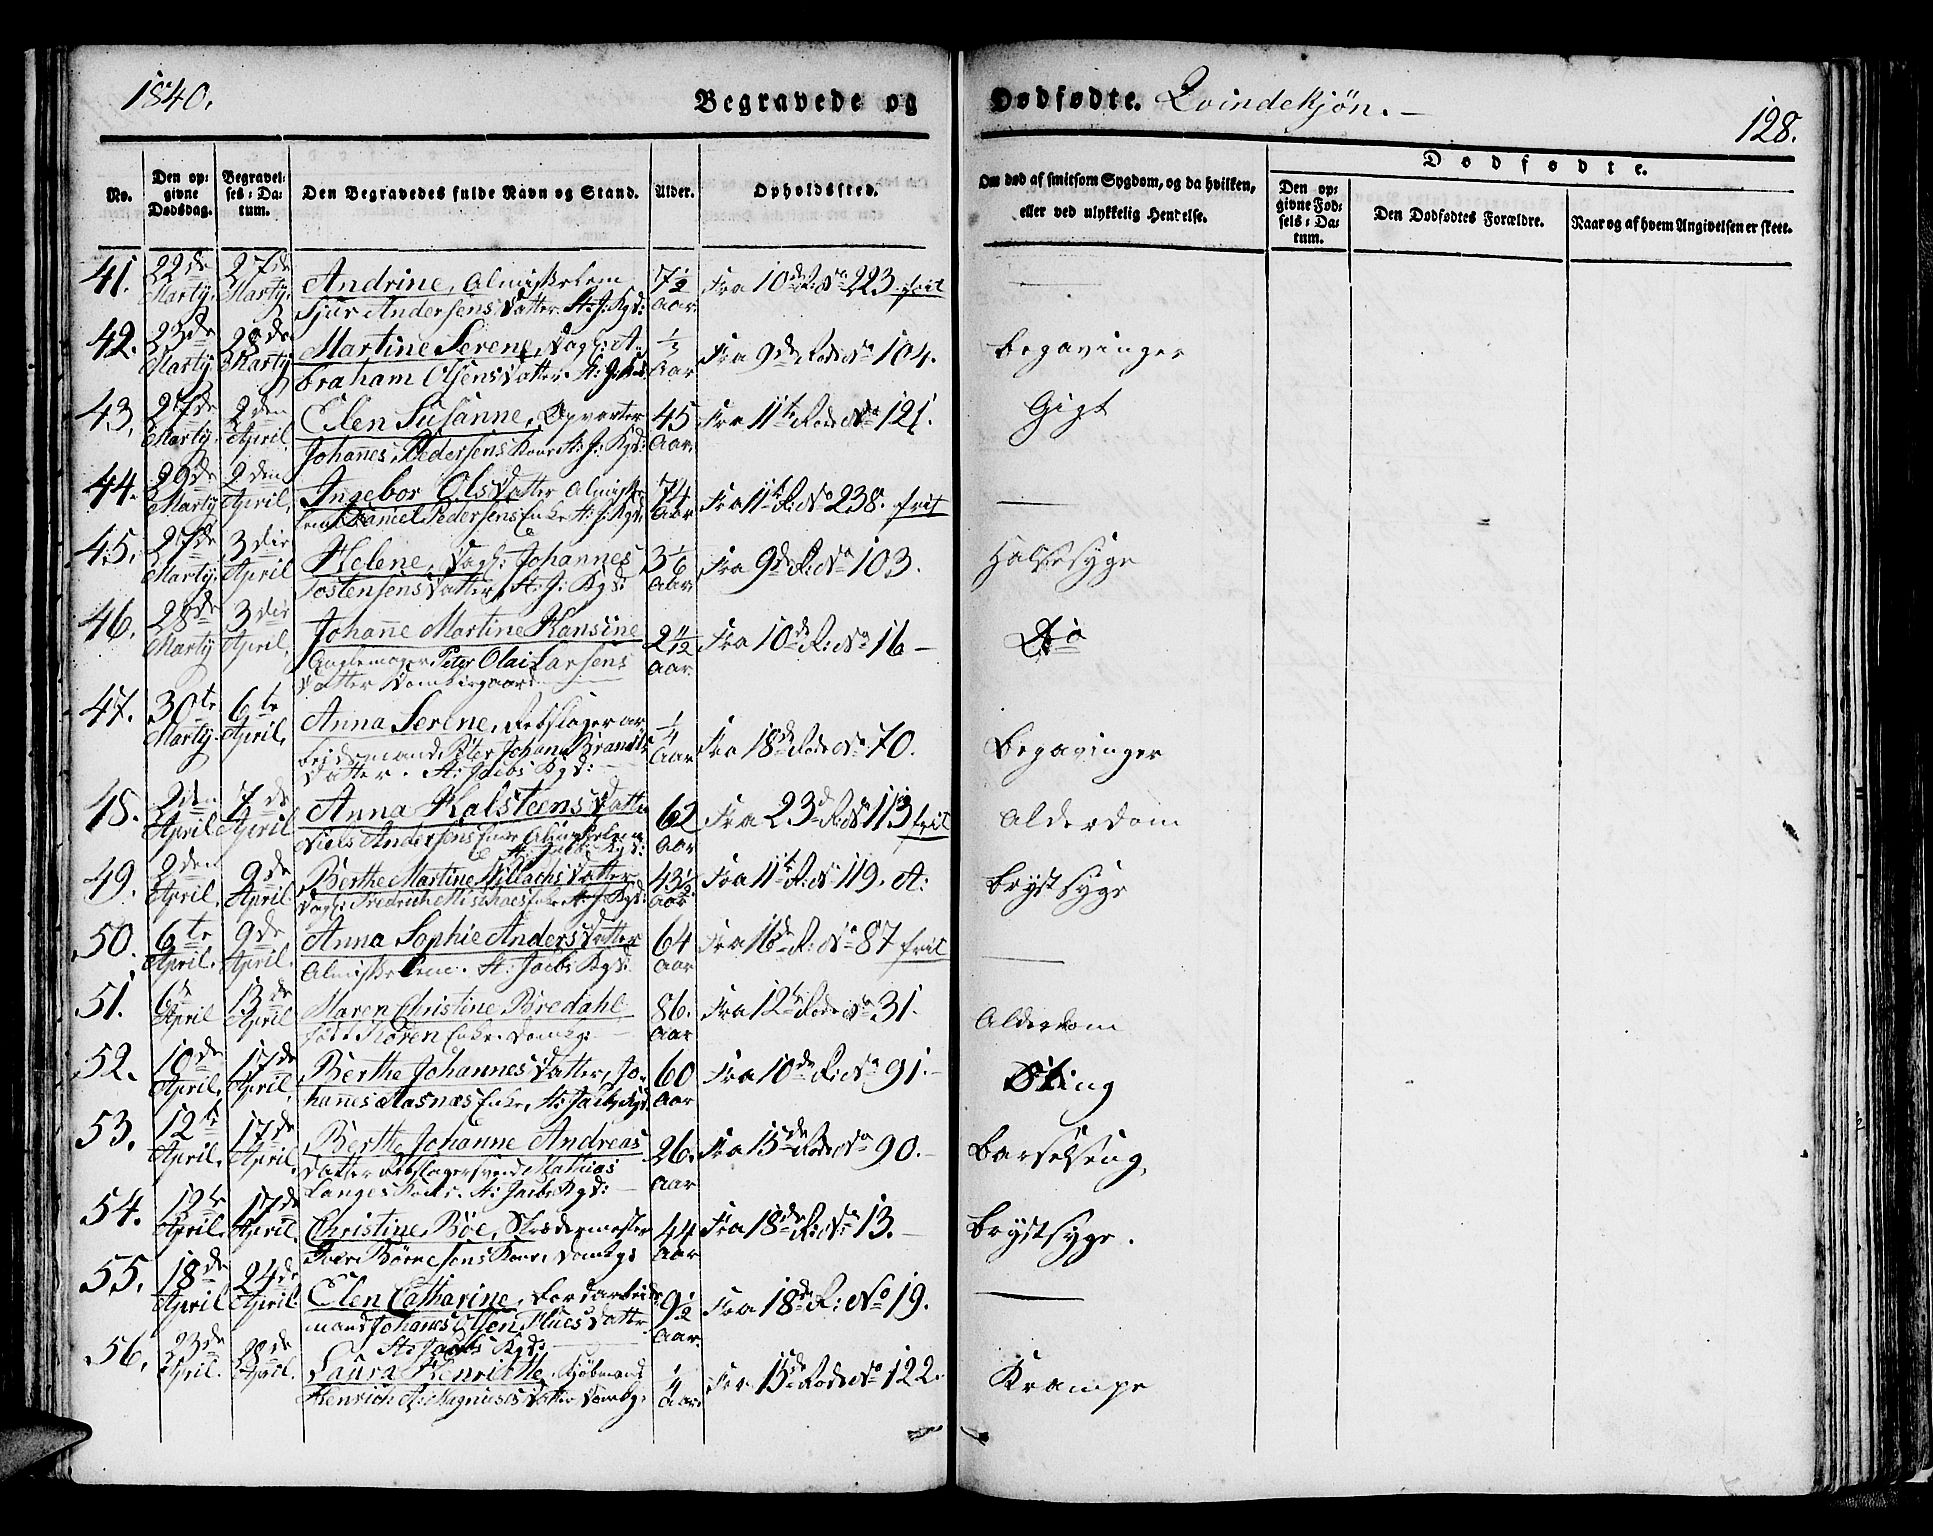 1840.
Begravede og
Dødfødte. Qvindekjøn. —
128.
No.
Den opgivne Dødsdag.
Begravelses-Datum.
Den Begravedes fulde Navn og Stand.
Alder.
Opholdssted.
Om død af smitsom Sygdom, og da hvilken, eller ved ulykkelig Hendelse.
Dødfødte.
Den opgivne Fødsels-Datum.
Den Dødfødtes Forældre.
Naar og af hvem Angivelsen er skeet.
41. 22de Martij. 27de Martij. Andrine, Almisselem 7½ Aar Fra 10de R. No 223 frit —
Sjur Andersens Datter. St: J: Kgd:
42. 23de Martij 28de Martij Martine Serene, Dagl: A- ⅓ Aar Fra 9de Rode No 104. Begavinger
braham Olsens Datter. St: J: Kgd
43. 27de Martij. 2den April Elen Susanne, Opvarter 45 Aar. Fra 11te Rode No 121. Gigt
Johannes Pedersens Kone St: J: Kgd:
44. 29de Martij 2den April, Ingebor Olsdatter Almisse 74 Aar Fra 11te R: No 238. frit —
lem Daniel Pedersens Enke St: J: Kgd:
45. 27de Martij. 3die April Helene, Dagl: Johannes 3 1/6 Aar Fra 9de R: No 103. Halssyge
Tostensens Datter, St: J: Kgd:
46. 28de Martij 3die April, Johanne Martine Hansine 2 11/12 Aar. Fra 10de R: No 16 — Do
Peter Olai Larsens
Datter
47. 30te Martij. 6te April, Anna Serene, Rebslager ar ¼ Aar Fra 18de Rode No 70. Begavinger
beidsmand Peter Johan Brandts
Datter. St: Jacobs Kgd:
48. 2den April 7de April Anna Kalsteens Datter 62 Aar Fra 23d R: No 113 frit Alderdom
Niels Andersens Enke Almisselem
St: Jacobs Kgd:
49. 2den April. 9de April. Berthe Martine Datter 43½ Aar Fra 11te R: No 119. A: Brystsyge
Dagl: Fredrich Enke St: J: Kgd:
50. 6te April. 9de April. Anna Sophie Anders Datter 64 Aar Fra 16de R: No 87 frit —
Almisselem. St: Jacobs Kgd:
51. 6te April 13de April Maren Christine Bredahl 86. Aar Fra 12te Rode No 31. Alderdom
født Thoren Enke. Domkg: —
52. 10de April, 17de April, Berthe Johannes Datter, Jo- 60 Aar Fra 10de R: No 91. — Sting
hannes Aasnæs Enke, St: Jacobs Kgd.
53. 12te April. 17de April. Berthe Johanne Andreas 26. Aar Fra 15de Rode No 90. — Barselseng,
Datter Rebslagersvend Mathias
Langes Kone. St: Jacobs Kgd: —
54. 12te April. 17de April. Christine Böe, Skredermester 44 Aar Fra 18de R: No 13. — Brystsyge.
Iver Börnesens Kone, Domkg:
55. 18de April 24de April. Elen Catharine, Jordarbeids- 9½ Aar. Fra 18de R: No 19. —
mand Johannes Olsen Datter
St: Jacobs Kgd: —
56. 23de April. 28de April. Laura Henritte, Kjøbmand ¼ Aar. Fra 15de Rode No 122. Krampe
Henrich A: Magnuses Datter Domkg: